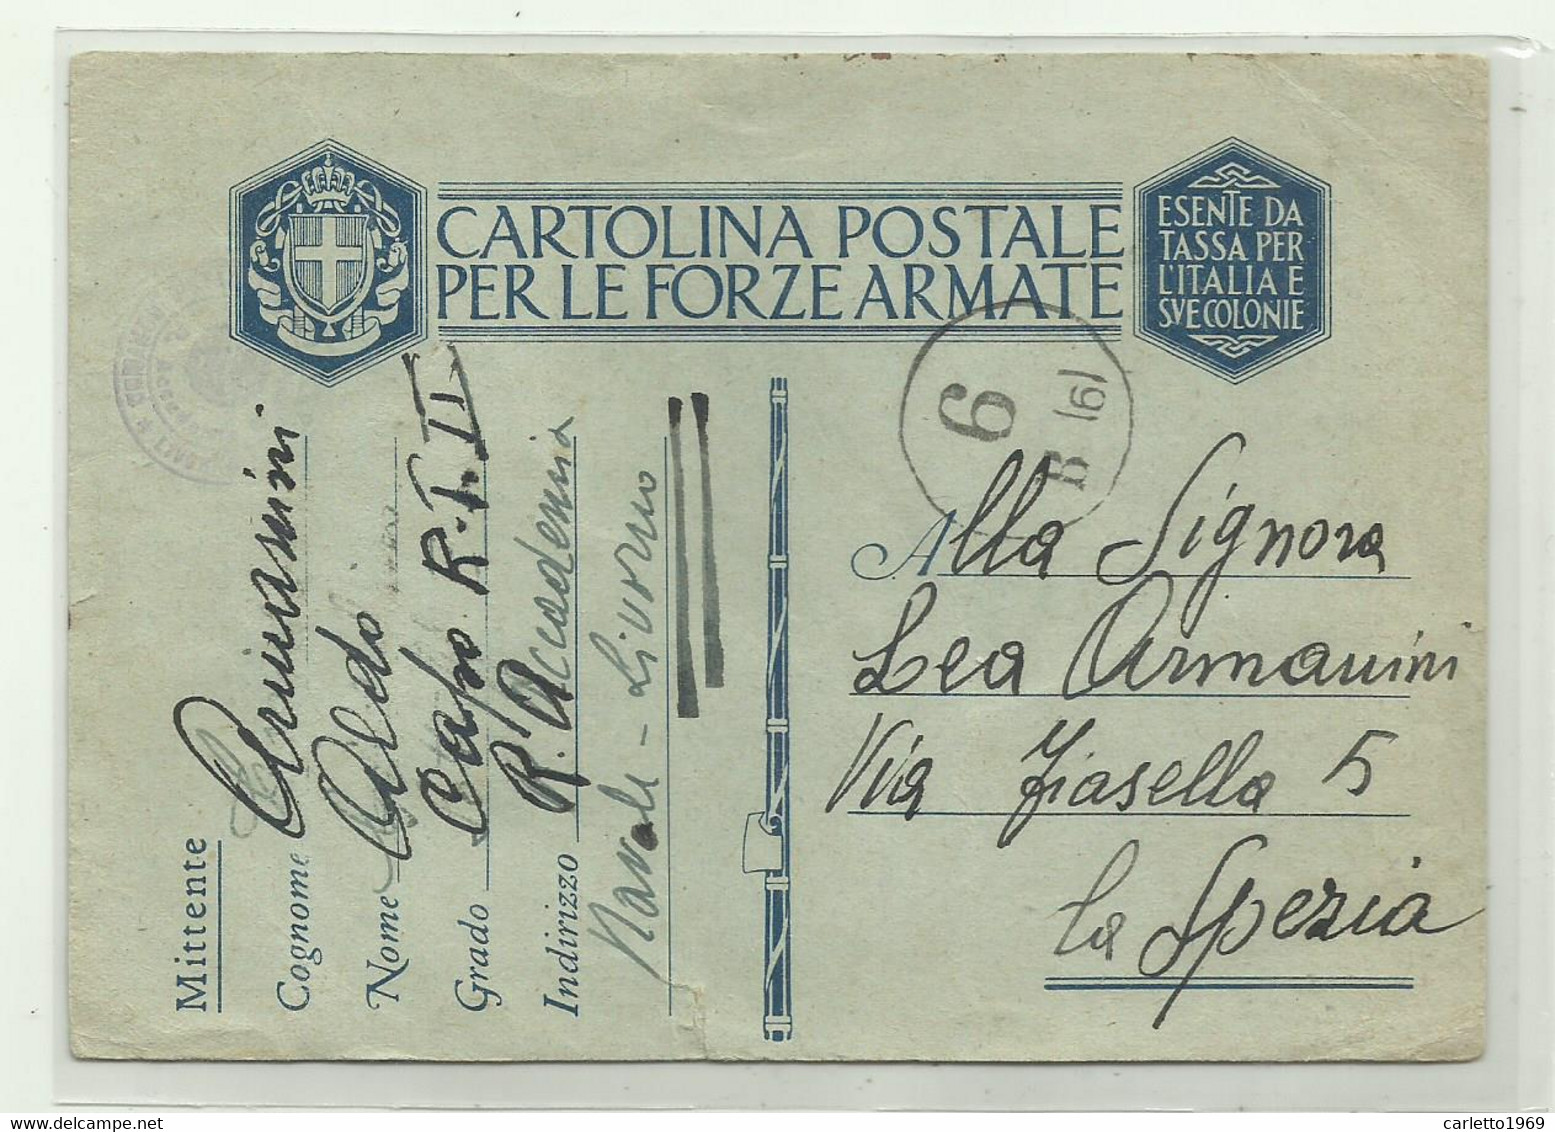 CARTOLINA POSTALE
PER LE FORZE ARMATE
ESENTE DA
TASSA PER
L'ITALIA E
SVE COLONIE
6
B (6)
Mittente
Cognome Armanini
Nome Aldo
Grado Capo R.T. II
Indirizzo R. Accademia
Navale - Livorno
Alla Signora
Lea Armanini
Via Fiasella 5
La Spezia
carletto1969